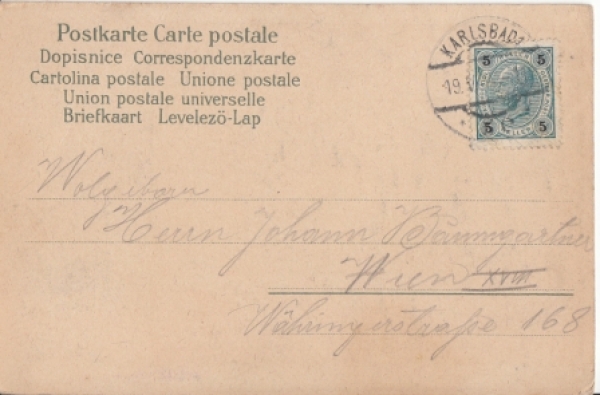 Postkarte Carte postale
Dopisnice Correspondenzkarte
Cartolina postale Unione postale
Union postale universelle
Briefkaart Levelezö-Lap
KARLSBAD
19.
5 5
5 5
Herrn Johann Baumgartner
Wien XVIII
Währingerstraße 168